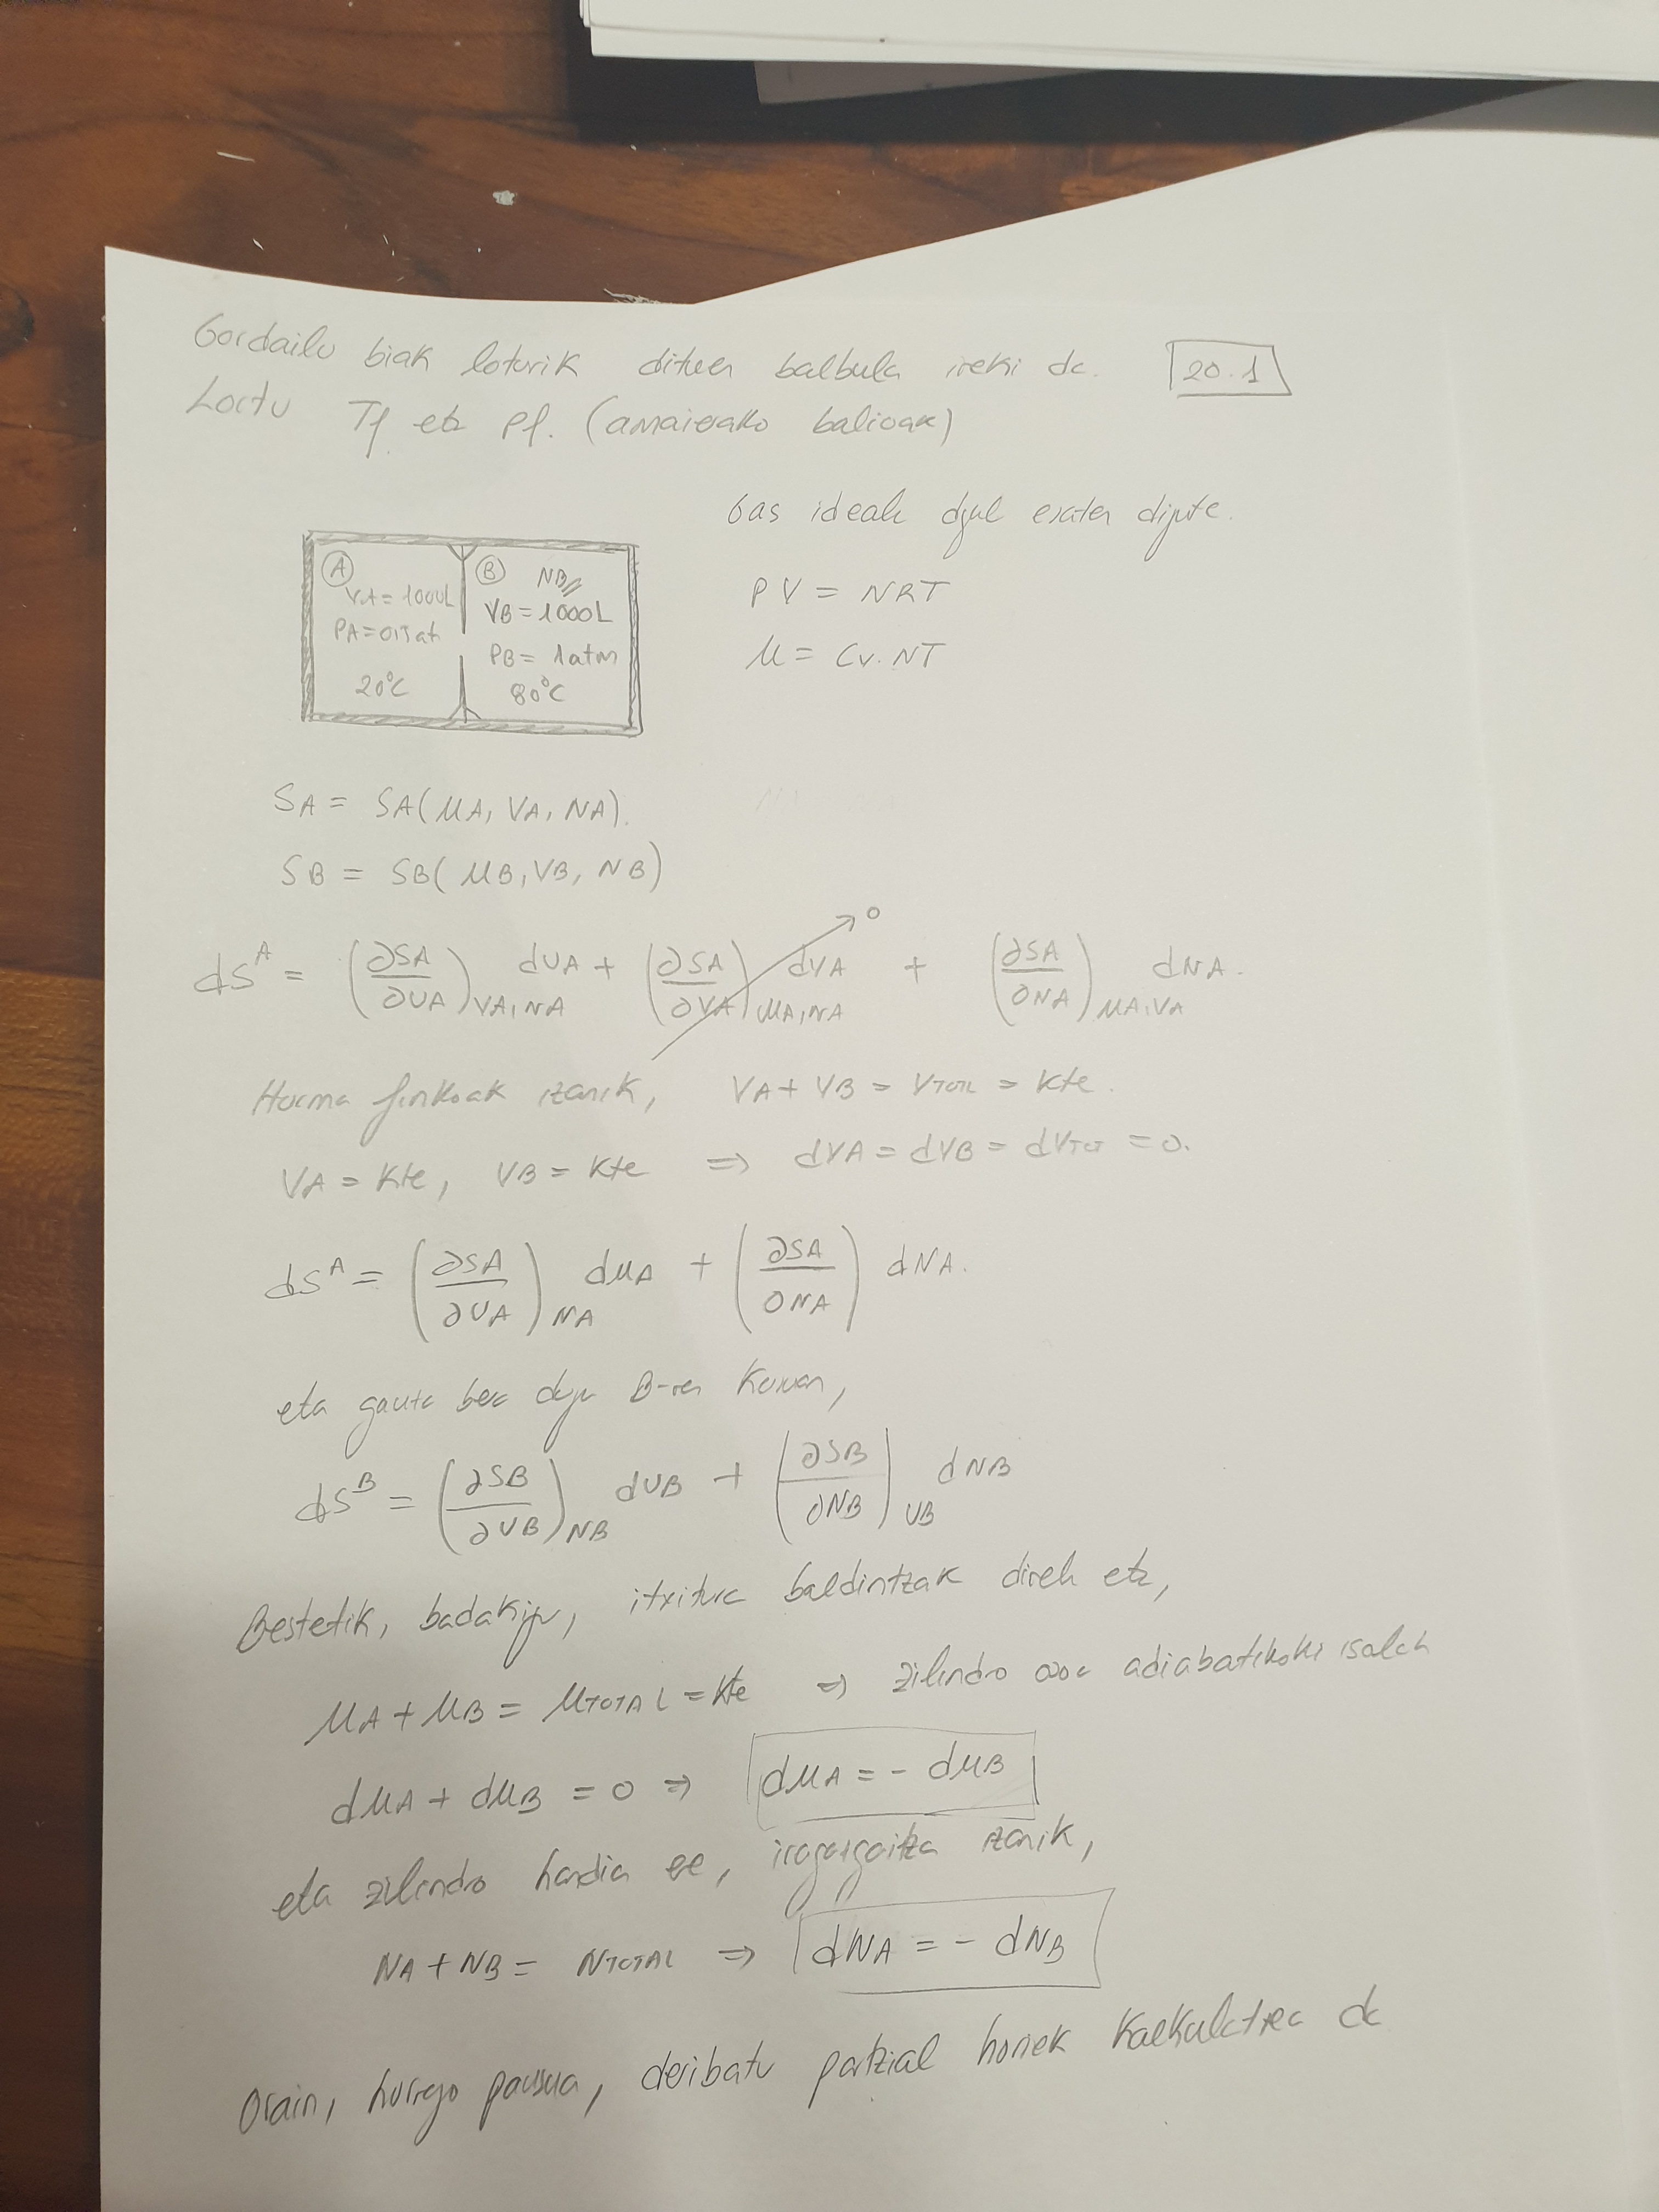 Gordailu biak loturik dituen balbula ireki da. 20.1
Lortu Tf eta Pf. (amaierako balioak)
Gas ideala dgul esaten digute.
PV = NRT
U = Cv·NT
A B NB
VA = 1000L VB = 1000L
PA = 0,5 at PB = 1 atm
20°C 80°C
SA = SA(UA, VA, NA).
SB = SB(UB, VB, NB)
dS^A = (∂SA/∂UA)VA,NA dUA + (∂SA/∂VA)UA,NA dVA →0 + (∂SA/∂NA)UA,VA dNA.
Horma finkoak izanik, VA + VB = VTOT = kte.
VA = kte, VB = kte ⇒ dVA = dVB = dVTOT = 0.
dS^A = (∂SA/∂UA)NA dUA + (∂SA/∂NA) dNA.
eta gauza bera dugu B-ren kasuan,
dS^B = (∂SB/∂UB)NB dUB + (∂SB/∂NB)UB dNB
Bestetik, badakigu, itxitura baldintzak direla eta,
UA + UB = UTOTAL = kte ⇒ zilindro osoa adiabatikoki isolatu
dUA + dUB = 0 ⇒ dUA = - dUB
eta zilindro handia ere, iragazgaitza izanik,
NA + NB = NTOTAL ⇒ dNA = - dNB
Orain, hurrengo pausua, deribatu partzial horiek kalkulatzea da